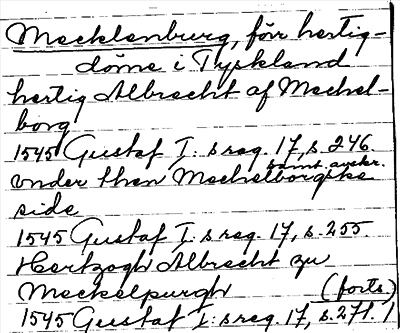 Mecklenburg, förr hertig-
döme i Tyskland
hertig Albrecht af Mechel-
borg
1545 Gustaf I: s reg. 17, s. 246.
samt. avskr.
vnder then Mechelborgske
side
1545 Gustaf I: s reg. 17, s. 255.
Hertzogh Albrecht zu
Meckelpurgh (forts.)
1545 Gustaf I: s reg. 17, s. 271. /